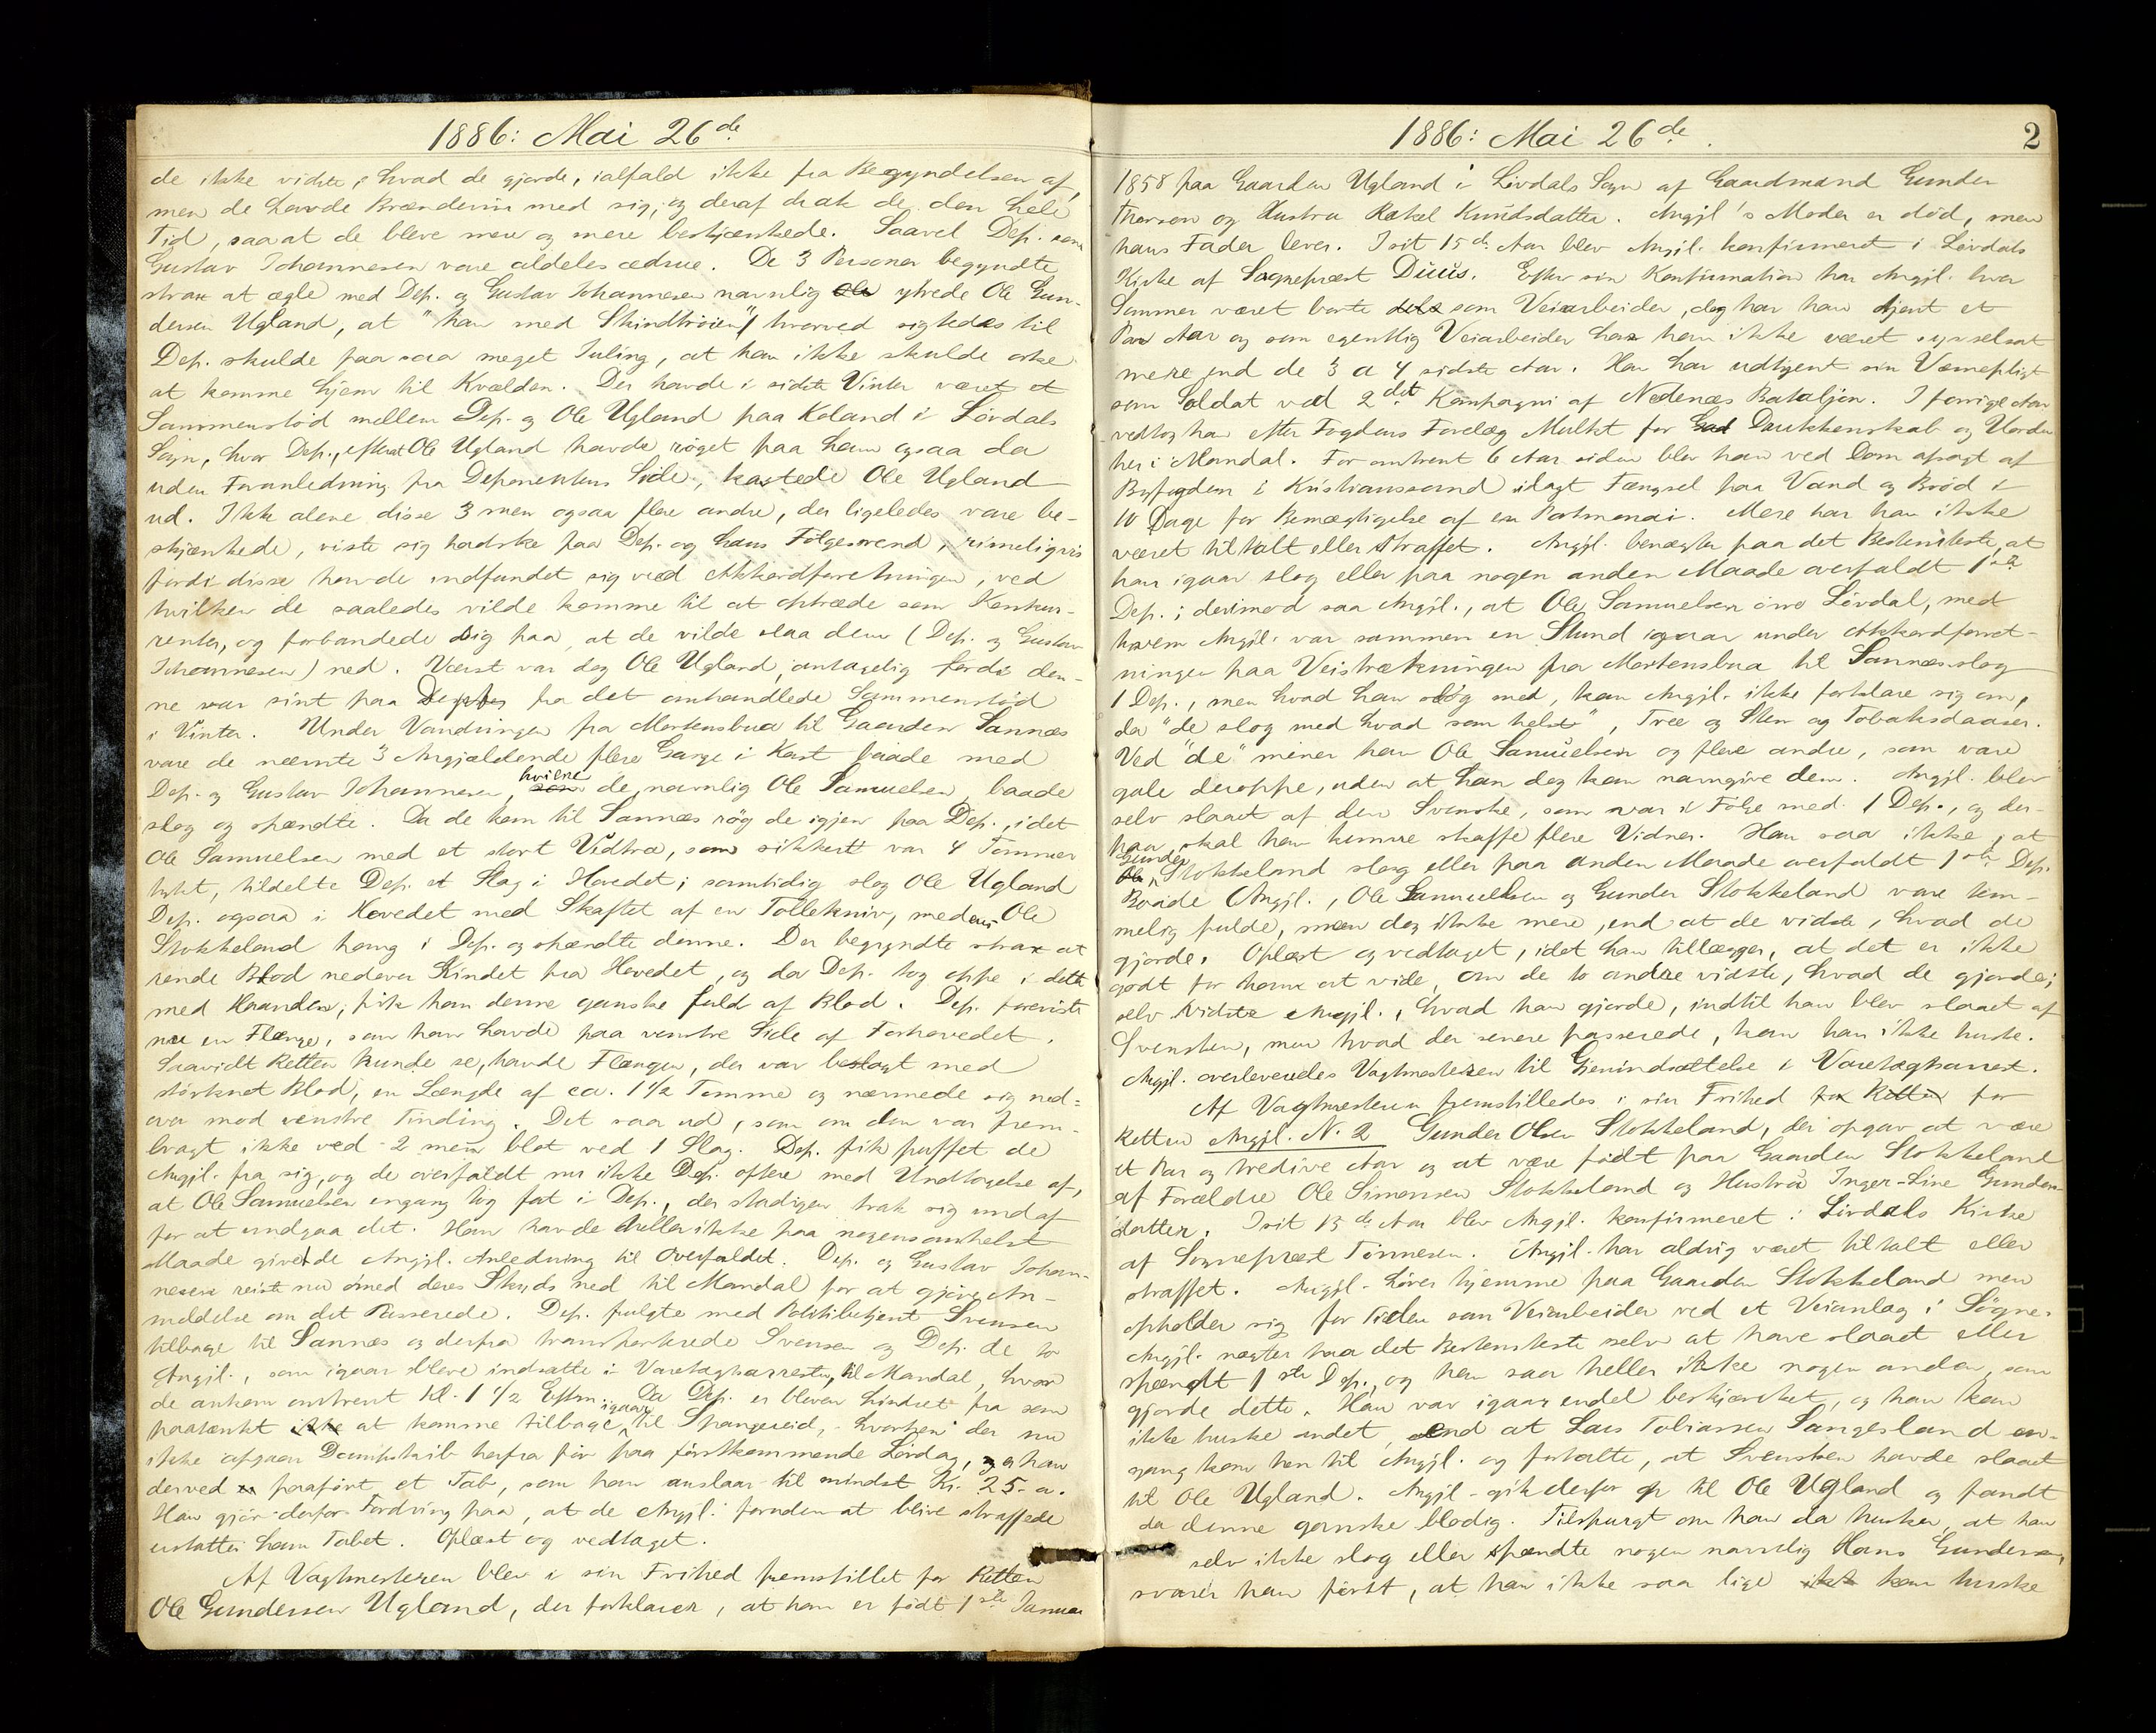 1886: Mai 26de
de ikke vidste, hvad de gjorde, ialfald ikke fra Begyndelsen af,
men de havde Brændevin med sig, og deraf drak de den hele
Tid, saa at de bleve mere og mere beskjænkede. Saavel Dep. som
Gustav Johannesen vare aldeles ædrue. De 3 Personer begyndte
strax at ægle med Dep. og Gustav Johannesen navnlig ytrede Ole Gun-
dersen Ugland, at "han med Skindtröien", hvorved sigtedes til
Dep. skulde faa saa meget Juling, at han ikke skulde orke
at komme hjem til Kvælden. Der havde i sidste Vinter været et
Sammenstöd mellem Dep. og Ole Ugland paa Koland i Lövdals
Sogn, hvor Dep., efterat Ole Ugland havde röget paa ham ogsaa da
uden Foranledning fra Deponentens Side, kastede Ole Ugland
ud. Ikke alene disse 3 men ogsaa flere andre, der ligeledes vare be-
skjænkede, viste sig hadske paa Dep. og hans Fölgesvend, rimeligvis
fordi disse havde indfundet sig ved Akkordforretningen, ved
hvilken de saaledes vilde komme til at optræde som Konkur-
renter, og forbandede sig paa, at de vilde slaa dem (Dep. og Gustav
Johannesen) ned. Værst var dog Ole Ugland, antagelig fordi den-
ne var sint paa Dep. fra det omhandlede Sammenstöd
i Vinter. Under Vandringen fra Mortensbua til Gaarden Sannæs
vare de nævnte 3 Angjældende flere Gange i Kast baade med
Dep. og Gustav Johannesen, hvilke de, navnlig Ole Samuelsen, baade
slog og spændte. Da de kom til Sannæs røg de igjen paa Dep., idet
Ole Samuelsen med et stort Vedtræ, som sikkert var 4 Tommer
tykt, tildelte Dep. et Slag i Hovedet; samtidig slog Ole Ugland
Dep. ogsaa i Hovedet med Skaftet af en Tollekniv, medens Ole
Stokkeland hang i Dep. og spændte denne. Der begyndte strax at
rende Blod nedover Kindet fra Hovedet, og da Dep. tog oppe i dette
med Haanden, fik han denne ganske fuld af Blod. Dep. foreviste
nu en Flænge, som han havde paa venstre Side af Forhovedet.
Saavidt Retten kunde se, havde Flængen, der var belagt med
störknet Blod, en Længde af ca. 1 1/2 Tomme og nærmede sig ned-
over mod venstre Tinding. Det saa ud, som om den var frem-
bragt ikke ved 2 men blot ved 1 Slag. Dep. fik puffet de
Angjl. fra sig, og de overfaldt nu ikke Dep. oftere med Undtagelse af,
at Ole Samuelsen engang tog fat i Dep., der stadigen trak sig undaf
for at undgaa det. Han havde heller ikke paa nogensomhelst
Maade givet de Angjl. Anledning til Overfaldet. Dep. og Gustav Johan-
nesen reiste nu med deres Skyds ned til Mandal for at gjöre An-
meldelse om det Passerede. Dep. fulgte med Politibetjent Svensen
tilbage til Sannæs og derfra transporterede Svensen og Dep. de to
Angjl., som igaar bleve indsatte i Varetægtsarresten, til Mandal, hvor
de ankom omtrent Kl. 1 1/2 Eftm. Da Dep. er bleven hindret fra som
paatænkt at komme tilbage igaar til Spangereid, hvorhen der nu
ikke afgaar Dampskib herfra för paa förstkommende Lördag, er han
derved paafört et Tab, som han anslaar til mindst Kr. 25-a.
Han gjör derfor Fordring paa, at de Angjl. foruden at blive straffede
erstatter ham Tabet. Oplæst og vedtaget.
Af Vagtmesteren blev i sin Frihed fremstillet for Retten
Ole Gundersen Ugland, der forklarer, at han er födt 1ste Januar
1886: Mai 26de.
2
1858 paa Gaarden Ugland i Lövdals Sogn af Gaardmand Gunder
Thorsen og Hustru Rakel Knudsdatter. Angjl's Moder er död, men
hans Fader lever. I sit 15de Aar blev Angjl. konfirmeret i Lövdals
Kirke af Sognepræst Duus. Efter sin Konfirmation har Angjl. hver
Sommer været borte dels som Veiarbeider, dog har han tjent et
Par Aar og som egentlig Veiarbeider har han ikke været sysselsat
mere end de 3 a 4 sidste Aar. Han har udtjent sin Værnepligt
som Soldat ved 2det Kompagni af Nedenæs Bataljon. I forrige Aar
vedtog han efter Fogdens Forelæg Mulkt for Drukkenskab og Uorden
her i Mandal. For omtrent 6 Aar siden blev han ved Dom afsagt af
Byfogden i Kristianssand idagt Fængsel paa Vand og Bröd i
10 Dage for Bemægtigelse af en Portmonai. Mere har han ikke
været tiltalt eller straffet. Angjl. benægter paa det Bestemteste, at
han igaar slog eller paa nogen anden Maade overfaldt 1ste
Dep.; derimod saa Angjl., at Ole Samuelsen övre Lövdal, med
hvem Angjl. var sammen en Stund igaar under Akkordforret-
ningen paa Veistrækningen fra Mortensbua til Sannæs slog
1 Dep., men hvad han slog med, kan Angjl. ikke forklare sig om,
da "de slog med hvad som helst", Træ og Sten og Tobaksdaaser.
Ved "de" mener han Ole Samuelsen og flere andre, som vare
gale deroppe, uden at han dog kan navngive dem. Angjl. blev
selv slaaet af den Svenske, som var i Fölge med 1 Dep., og der-
paa skal han kunne skaffe flere Vidner. Han saa ikke, at
Gunder Stokkeland slog eller paa anden Maade overfaldt 1ste Dep.
Baade Angjl., Ole Samuelsen og Gunder Stokkeland vare tem-
melig fulde, men dog ikke mere, end at de vidste, hvad de
gjorde. Oplæst og vedtaget, idet han tillægger, at det er ikke
godt for ham at vide, om de to andre vidste, hvad de gjorde;
selv vidste Angjl., hvad han gjorde, indtil han blev slaaet af
Svensken, men hvad der senere passerede, kan han ikke huske.
Angjl. overleveredes Vagtmesteren til Gjenindsættelse i Varetægtsarrest.
Af Vagtmesteren fremstilledes i sin Frihed for Retten for
Retten Angjl. No. 2 Gunder Olsen Stokkeland, der opgav at være
et Par og tredive Aar og at være födt paa Gaarden Stokkeland
af Forældre Ole Simonsen Stokkeland og Hustru Inger-Line Gunders-
datter. I sit 15de Aar blev Angjl. konfirmeret i Lövdals Kirke
af Sognepræst Tönnesen. Angjl. har aldrig været tiltalt eller
straffet. Angjl. hörer hjemme paa Gaarden Stokkeland men
opholder sig for Tiden som Veiarbeider ved et Veianlæg i Sögne.
Angjl. nægter paa det Bestemteste selv at have slaaet eller
spændt 1ste Dep., og han saa heller ikke nogen anden, som
gjorde dette. Han var igaar endel beskjænket, og han kan
ikke huske andet, end at Lars Tobiassen Sangesland en-
gang kom hen til Angjl. og fortalte, at Svensken havde slaaet
til Ole Ugland. Angjl. gik derfor op til Ole Ugland og fandt
da denne ganske blodig. Tilspurgt om han da husker, at han
selv ikke slog eller spændte nogen navnlig Hans Gundersen,
svarer han först, at han ikke saa lige kan huske